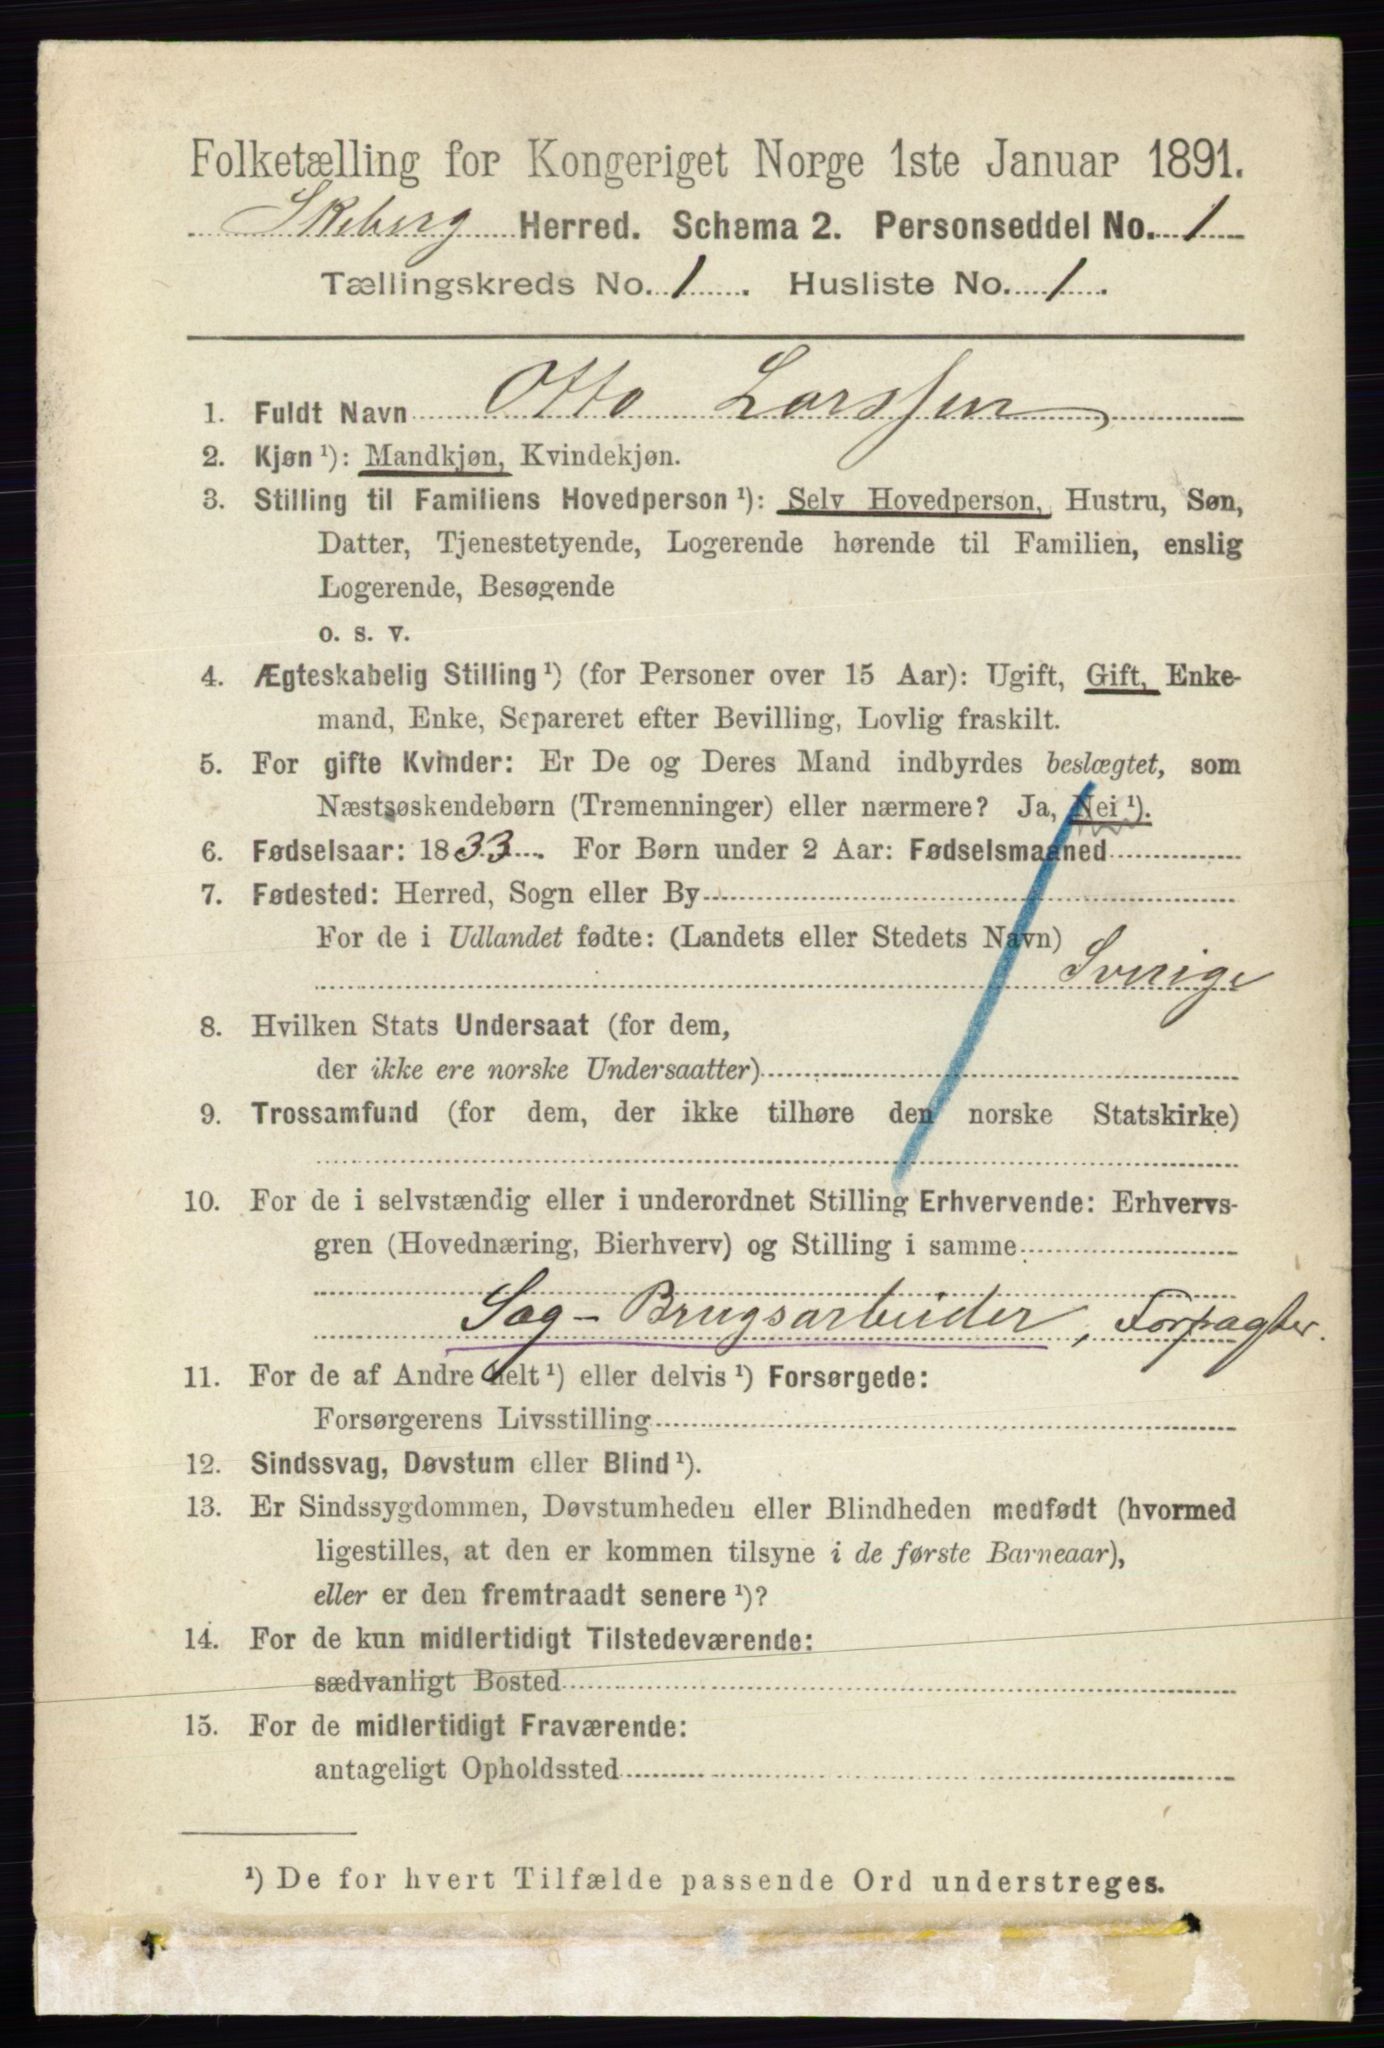 Folketælling for Kongeriget Norge 1ste Januar 1891.
Skeberg Herred. Schema 2. Personseddel No. 1
Tællingskreds No. 1. Husliste No. 1.
1. Fuldt Navn Otto Larssen
2. Kjøn ¹): Mandkjøn, Kvindekjøn.
3. Stilling til Familiens Hovedperson ¹): Selv Hovedperson, Hustru, Søn,
Datter, Tjenestetyende, Logerende hørende til Familien, enslig
Logerende, Besøgende
o. s. v.
4. Ægteskabelig Stilling ¹) (for Personer over 15 Aar): Ugift, Gift, Enke-
mand, Enke, Separeret efter Bevilling, Lovlig fraskilt.
5. For gifte Kvinder: Er De og Deres Mand indbyrdes beslægtet, som
Næstsøskendebørn (Tremenninger) eller nærmere? Ja, Nei ¹).
6. Fødselsaar: 1833. For Børn under 2 Aar: Fødselsmaaned
7. Fødested: Herred, Sogn eller By
For de i Udlandet fødte: (Landets eller Stedets Navn)
Sverige
8. Hvilken Stats Undersaat (for dem,
der ikke ere norske Undersaatter)
9. Trossamfund (for dem, der ikke tilhøre den norske Statskirke)
10. For de i selvstændig eller i underordnet Stilling Erhvervende: Erhvervs-
gren (Hovednæring, Bierhverv) og Stilling i samme
Sag-Brugsarbeider, Forpagter.
11. For de af Andre helt ¹) eller delvis ¹) Forsørgede:
Forsørgerens Livsstilling
12. Sindssvag, Døvstum eller Blind ¹).
13. Er Sindssygdommen, Døvstumheden eller Blindheden medfødt (hvormed
ligestilles, at den er kommen tilsyne i de første Barneaar),
eller er den fremtraadt senere ¹)?
14. For de kun midlertidigt Tilstedeværende:
sædvanligt Bosted
15. For de midlertidigt Fraværende:
antageligt Opholdssted
¹) De for hvert Tilfælde passende Ord understreges.